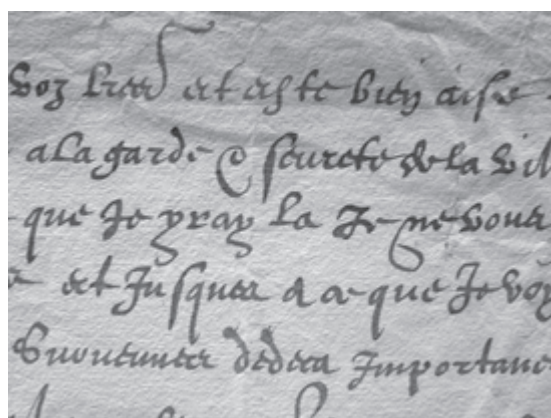 voz lres et este bien aise
a la garde & seurete de la vil
que Je yray la Je ne vous
et Jusques a ce que Je voy
dedeca Importance